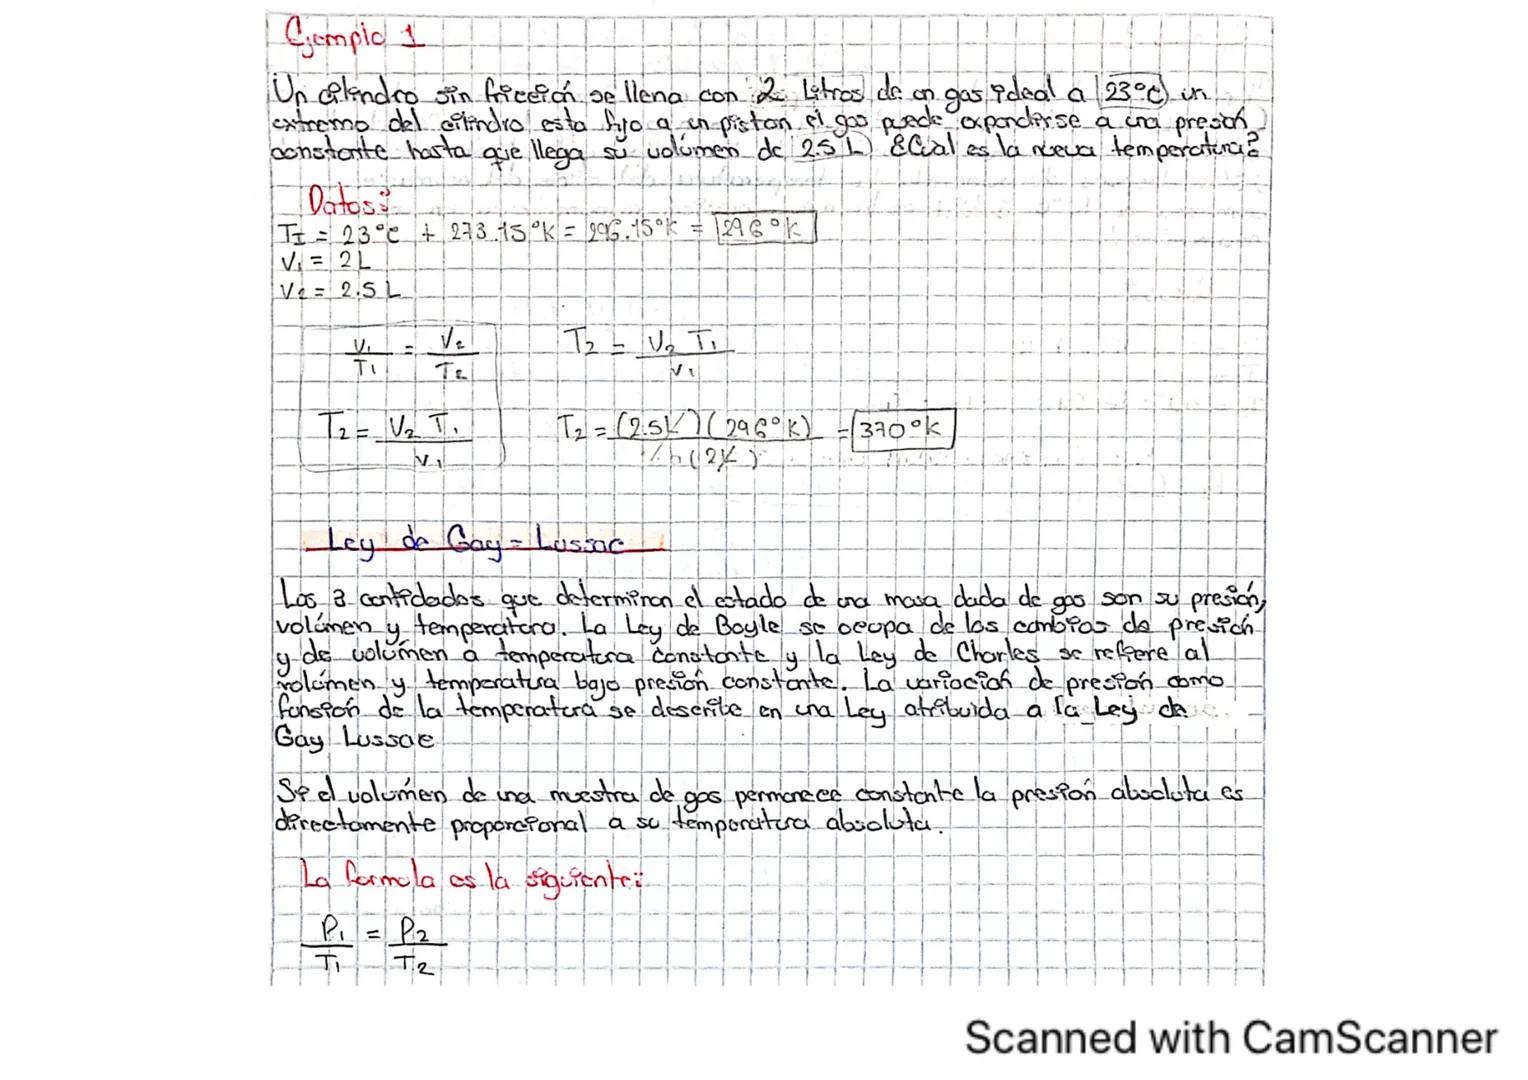 Ejemplo 1
Un cilindro sin fricción se llena con 2 Litros de un gas ideal a 23°C un
extremo del cilindro esta fijo a un piston el gas puede expandirse a una presión
constante hasta que llega su volúmen de 2.5 L ¿Cual es la nueva temperatura?
Datos:
T1 = 23°C + 273.15°K = 296.15°K = 296°K
V1 = 2L
V2 = 2.5 L
V1/T1 = V2/T2
T2 = V2 T1/V1
T2 = V2 T1/V1
T2 = (2.5L)(296°K)/(2L) = 370°K
Ley de Gay-Lussac
Las 3 cantidades que determinan el estado de una masa dada de gas son su presión,
volúmen y temperatura. La Ley de Boyle se ocupa de los cambios de presión
y de volúmen a temperatura constante y la Ley de Charles se refiere al
volúmen y temperatura bajo presión constante. La variación de presión como
funsión de la temperatura se describe en una Ley atribuida a la Ley de
Gay Lussac
Si el volúmen de una muestra de gas permanece constante la presión absoluta es
directamente proporcional a su temperatura absoluta.
La formula es la siguiente:
P1/T1 = P2/T2
Scanned with CamScanner